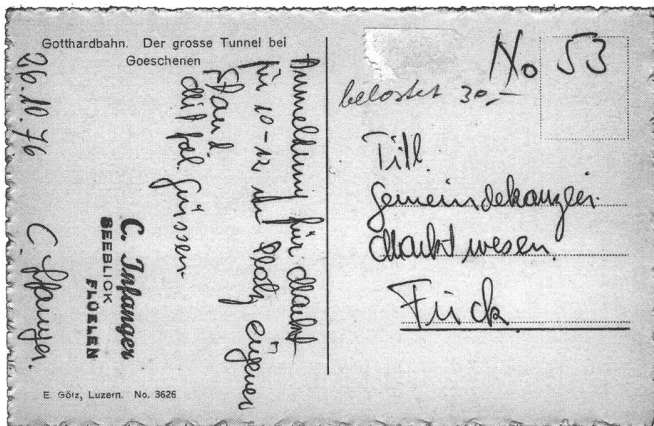 Gotthardbahn. Der grosse Tunnel bei
Goeschenen
Anmeldung für Markt
für 10-12 m Platz eigener
Stand.
Mit fdl. Grüssen
C. Infanger
SEEBLICK
FLÜELEN
26.10.76 C. Infanger.
E. Götz, Luzern. No. 3626
No 53
belastet 30.–
Titl.
Gemeindekanzlei.
Marktwesen.